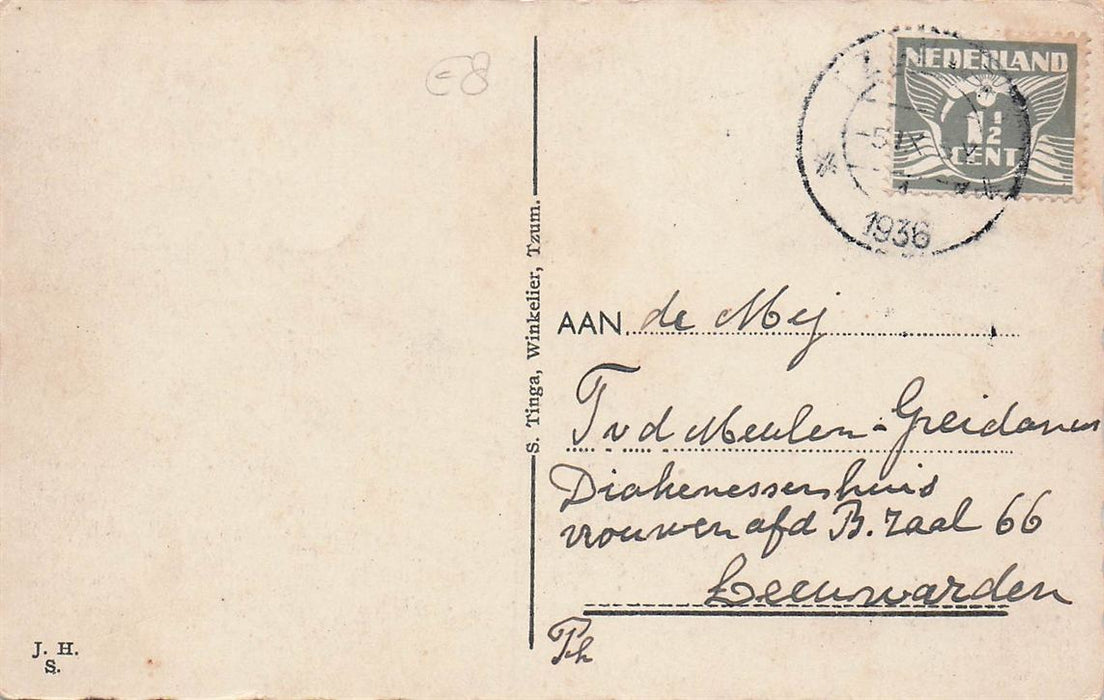 E8
NEDERLAND
1½
CENT
5 IX
1936
S. Tinga, Winkelier, Tzum.
AAN de Mej
T v d Meulen-Greidanus
Diakenessenhuis
vrouwen afd B. zaal 66
Leeuwarden
Th
J. H.
S.